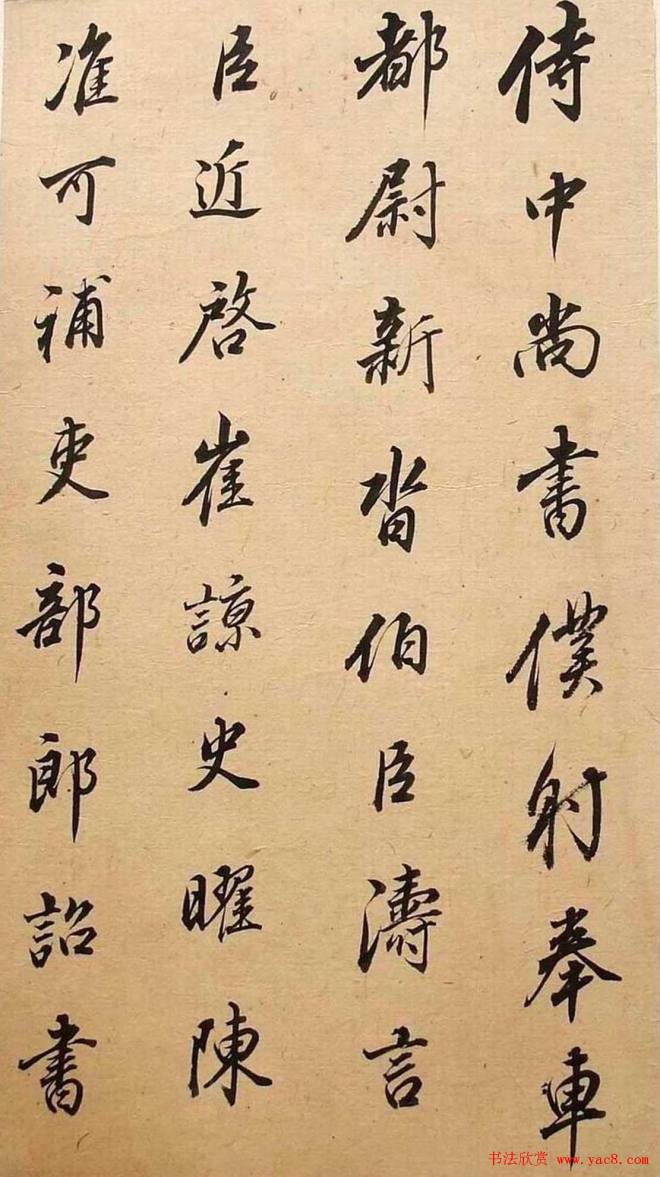 侍中尚書僕射奉車
都尉新沓伯臣濤言
臣近啓崔諒史曜陳
准可補吏部郎詔書
书法欣赏 www.yac8.com